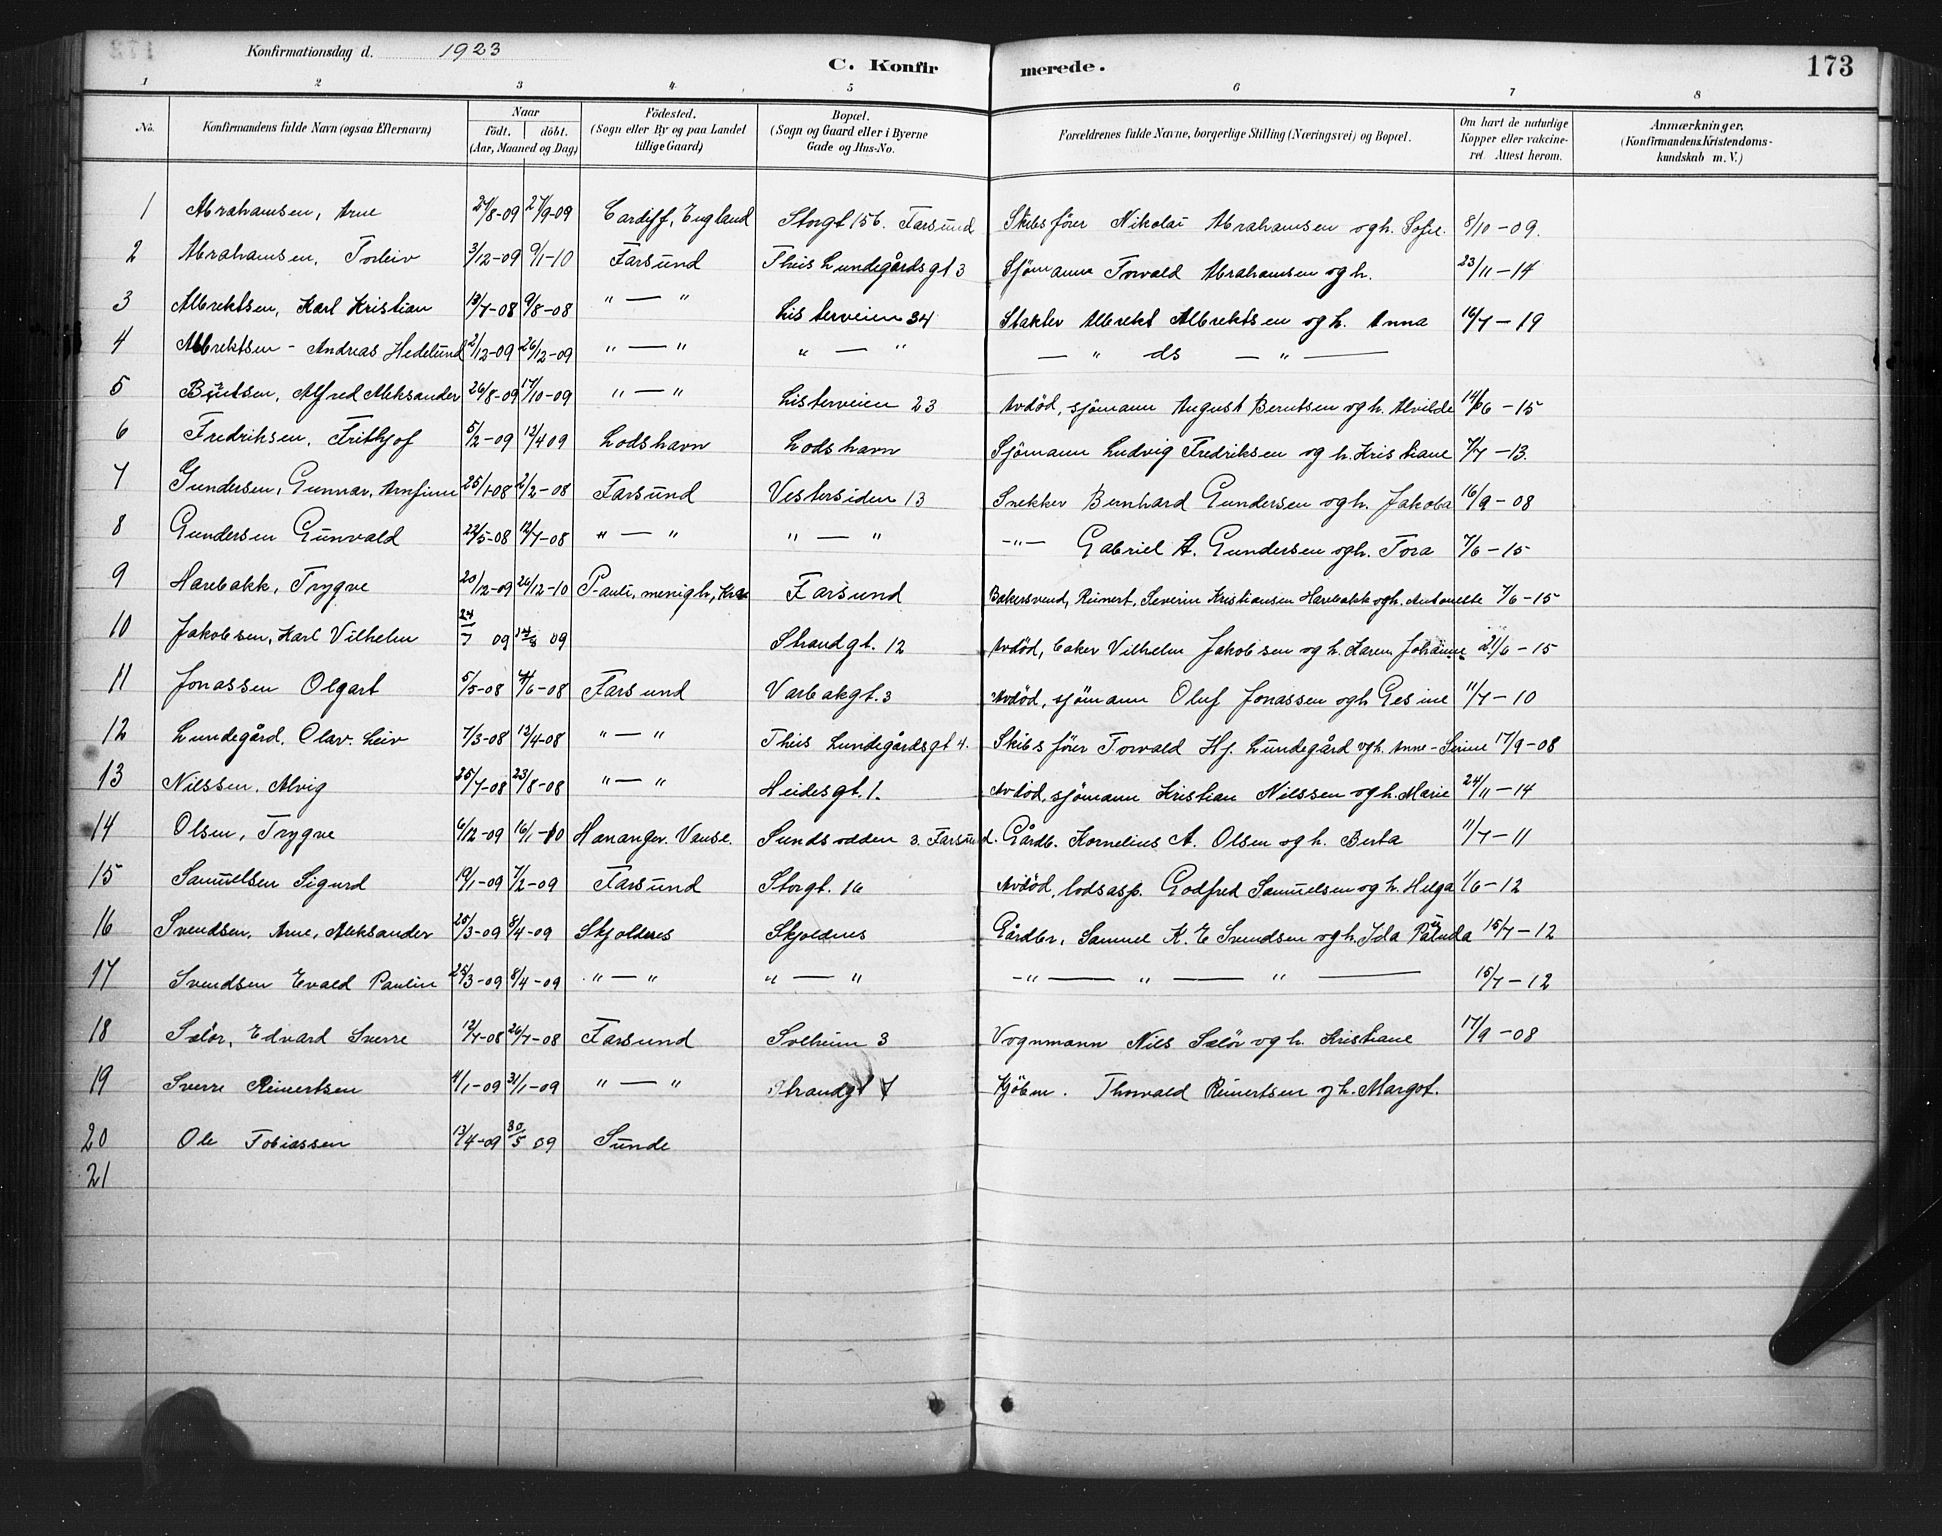 Konfirmationsdag d. 1923 C. Konfirmerede. 173
1 2 3 4 5 6 7 8
No. Konfirmandens fulde Navn (ogsaa Efternavn) Naar födt. döbt. (Aar, Maaned og Dag) Födested. (Sogn eller By og paa Landet tillige Gaard) Bopæl. (Sogn og Gaard eller i Byerne Gade og Hus-No. Forældrenes fulde Navne, borgerlige Stilling (Næringsvei) og Bopæl. Om havt de naturlige Kopper eller vakcineret. Attest herom. Anmærkninger. (Konfirmandens Kristendomskundskab m. V.)
1 Abrahamsen, Arne 8-09 9-09 Cardiff, England Storgt 156. Farsund Skibsförer Nikolai Abrahamsen og h. Sofie. 8/10-09.
2 Abrahamsen, Torleiv 3/12-09 9/1-10 Farsund Theis Lundegårdsgt 3 Sjömann Torvald Abrahamsen og h. 23/11-14
3 Albrektsen, Karl Kristian 13/7-08 9/8-08 " — " Listerveien 34 Albrekt Albrektsen og h. Anna 16/7-19
4 Albrektsen - Andreas Hedelund 2/12-09 26/12-09 " — " " — " — " ds — " —
5 Berntsen, Alfred Aleksander 26/8-09 17/10-09 " — " Listerveien 23 Avdöd, sjömann August Berntsen og h. Alvilde 14/6-15
6 Fredriksen, Fritkjof 5/2-09 13/4 09 Lodshavn Lodshavn Sjömann Ludvig Fredriksen og h. Kristiane 7/7-13.
7 Gundersen, Gunnar, Arnfinn 25/1-08 2/2-08 Farsund Vestersiden 13 Snekker Bernhard Gundersen og h. Jakoba 16/9-08
8 Gundersen Gunvald 22/5-08 12/7-08 " — " " — " -"- Gabriel A. Gundersen og h. Tora 7/6-15
9 Harebakk, Trygve 20/12-09 26/12-10 Pauli, menigh, Farsund Bakersvend, Reinert, Severin Kristiansen Harebakk og h. Antonette 7/6-15
10 Jakobsen, Karl Vilhelm 24/7 09 09 Strandgt. 12 Avdöd, baker Vilhelm Jakobsen og h. Karen Johanne 21/6-15
11 Jonassen Olgart 5/5-08 6-08 Farsund Varbakgt. 3 Avdöd, sjömann Oluf Jonassen og h Gesine 11/7-10
12 Lundegård, Olav. Leiv 7/3-08 12/4-08 " — " Theis Lundegårdsgt 4. Skibsförer Torvald Hj. Lundegård og h. Anne-Serine 17/9-08
13 Nilssen, Alvig 25/7-08 23/8-08 " — " Heidesgt. 1. Avdöd, sjömann Kristian Nilssen og h. Marie 24/11-14
14 Olsen, Trygve 6/12-09 16/1-10 Hananger. Vanse. Sundsodden 3. Farsund. Gårdb. Kornelius A. Olsen og h. Berta 11/7-11
15 Samuelsen Sigurd 19/1-09 7/2-09 Farsund Storgt. 16 Avdöd, lodsasp. Godfred Samuelsen og h. Helga 1/6-12
16 Svendsen, Arne, Aleksander 25/3-09 8/4-09 Skjoldnes Skjoldnes Gårdbr, Samuel K. E Svendsen og h. Ida 15/7-12
17 Svendsen Evald Paulin 25/3-09 8/4-09 " — " " — " -" — " — " — 15/7-12
18 Salör, Edvard Sverre 12/7-08 26/7-08 Farsund Solheim 3 Vognmann Nils Salör og h. Kristiane 17/9-08
19 Sverre Reinertsen 4/1-09 31/1-09 " — " Strandgt 7 Kjöbm. Thorvald Reinertsen og h. Margot.
20 Ole Tobiassen 13/4-09 30/5 09 Sunde
21